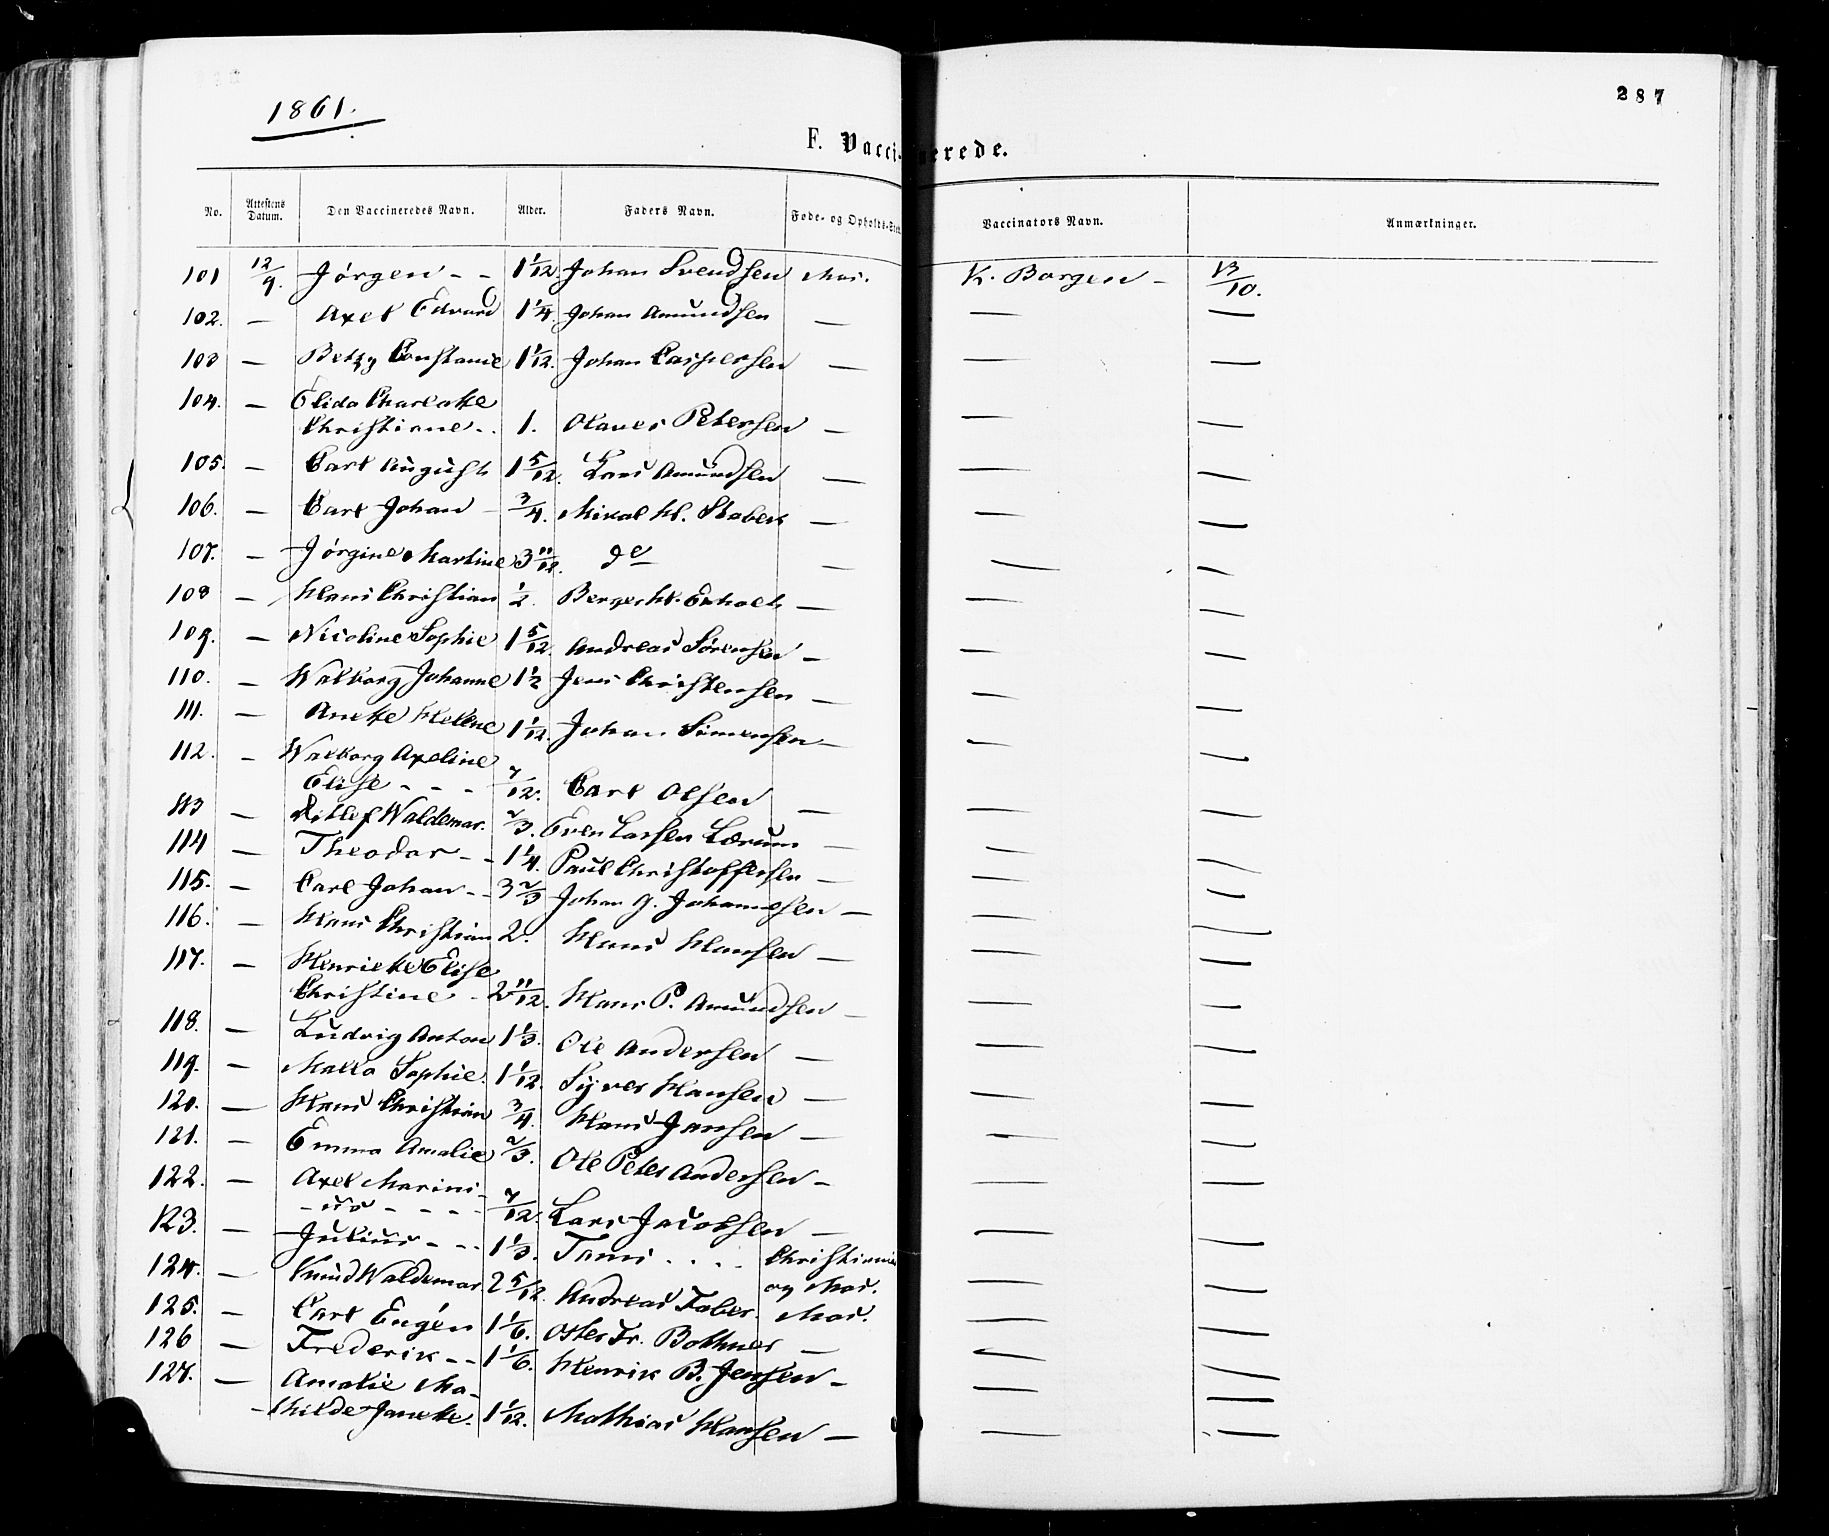 287
1861.
F. Vaccinerede.
No. Attestens Datum. Den Vaccineredes Navn. Alder. Faders Navn. Føde- og Opholds-Sted Vaccinators Navn. Anmærkninger.
101 12/9. Jørgen - - 1 1/12. Johan Svendsen Mos. K. Borgen - 13/10.
102. — Axel Edvard 1 1/4. Johan Amundsen — — —
103 — Betzy Constance 1 1/12. Johan Caspersen — — —
104. — Elida Charlotte
Christiane - . 1. Olaves Petersen — — —
105. — Carl August 1 5/12. Lars Amundsen — — —
106. — Carl Johan - 3/4. Mikal H. — — —
107. — Jørgine Martine 3 11/12. do — — —
108 — Hans Christian 1/2. — — —
109. — Nicoline Sophie 1 5/12. Andreas Sørensen — — —
110. — Walborg Johanne 1 1/2 Jens Christensen — — —
111. — Anette Helene 1 1/12. Johan Simensen — — —
112. — Walborg Axeline
Elise - - - 7/12. Carl Olsen — — —
113 — Ditlef Waldemar. 2/3. Even Larsen Lærum — — —
114 — Theodor - - 1 1/4. Paul Christoffersen — — —
115. — Carl Johan - - 3 2/3 Johan G. Johannesen — — —
116. — Hans Christian 2. Hans Hansen — — —
117. — Henriette Elise
Christine - 2 11/12. Hans P. Amundsen — — —
118. — Ludvig Anton 1 1/3. Ole Andersen — — —
119. — Malla Sophie. 1 1/12. Syver Hansen — — —
120. — Hans Christian 3/4. Hans Jansen — — —
121. — Emma Amalie 2/3. Ole Peter Andersen — — —
122. — Axel Marini-
- us - - - - 7/12. Lars Jacobsen — — —
123. — Julius - - - 1 1/3. Tami . . . . Christiania
og Mos. — —
124. — Knud Waldemar. 2 5/12. Andreas Faber. Mos. — —
125. — Carl Eugén 1 1/6. Fr. Bothner — — —
126 — Frederik - - 1 1/6. Henrik B. Jensen — — —
127. — Amalie Ma-
thilde Janette. 1 1/12. Mathias Hansen — — —